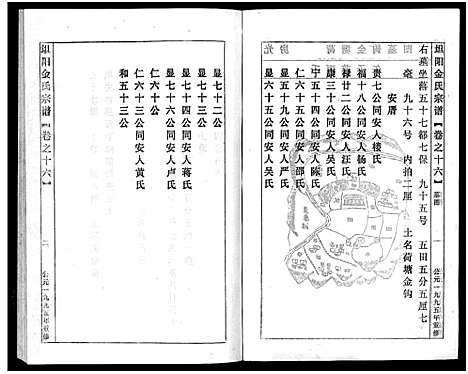 坦阳金氏宗谱【卷之十六】
墓图
一
公元一九九五年重修
右墓坐落五十七都七保 九十五号 五田五分五厘七
毫 九十六号 内拍二厘 土名荷塘金钩
安厝
贵七公同安人楼氏
福十八公同安人杨氏
禄廿二公同安人汪氏
康三十公同安人吴氏
宁五十四公同安人陈氏
仁六十五公同安人邵氏
显五十八公同安人严氏
显六十五公同安人吴氏
显七十二公
显七十三公
显七十一公同安人蒋氏
显七十四公同安人卢氏
仁六十公
仁六十三公同安人黄氏
和五十三公
坦阳金氏宗谱【卷之十六】
二
公元一九九五年重修